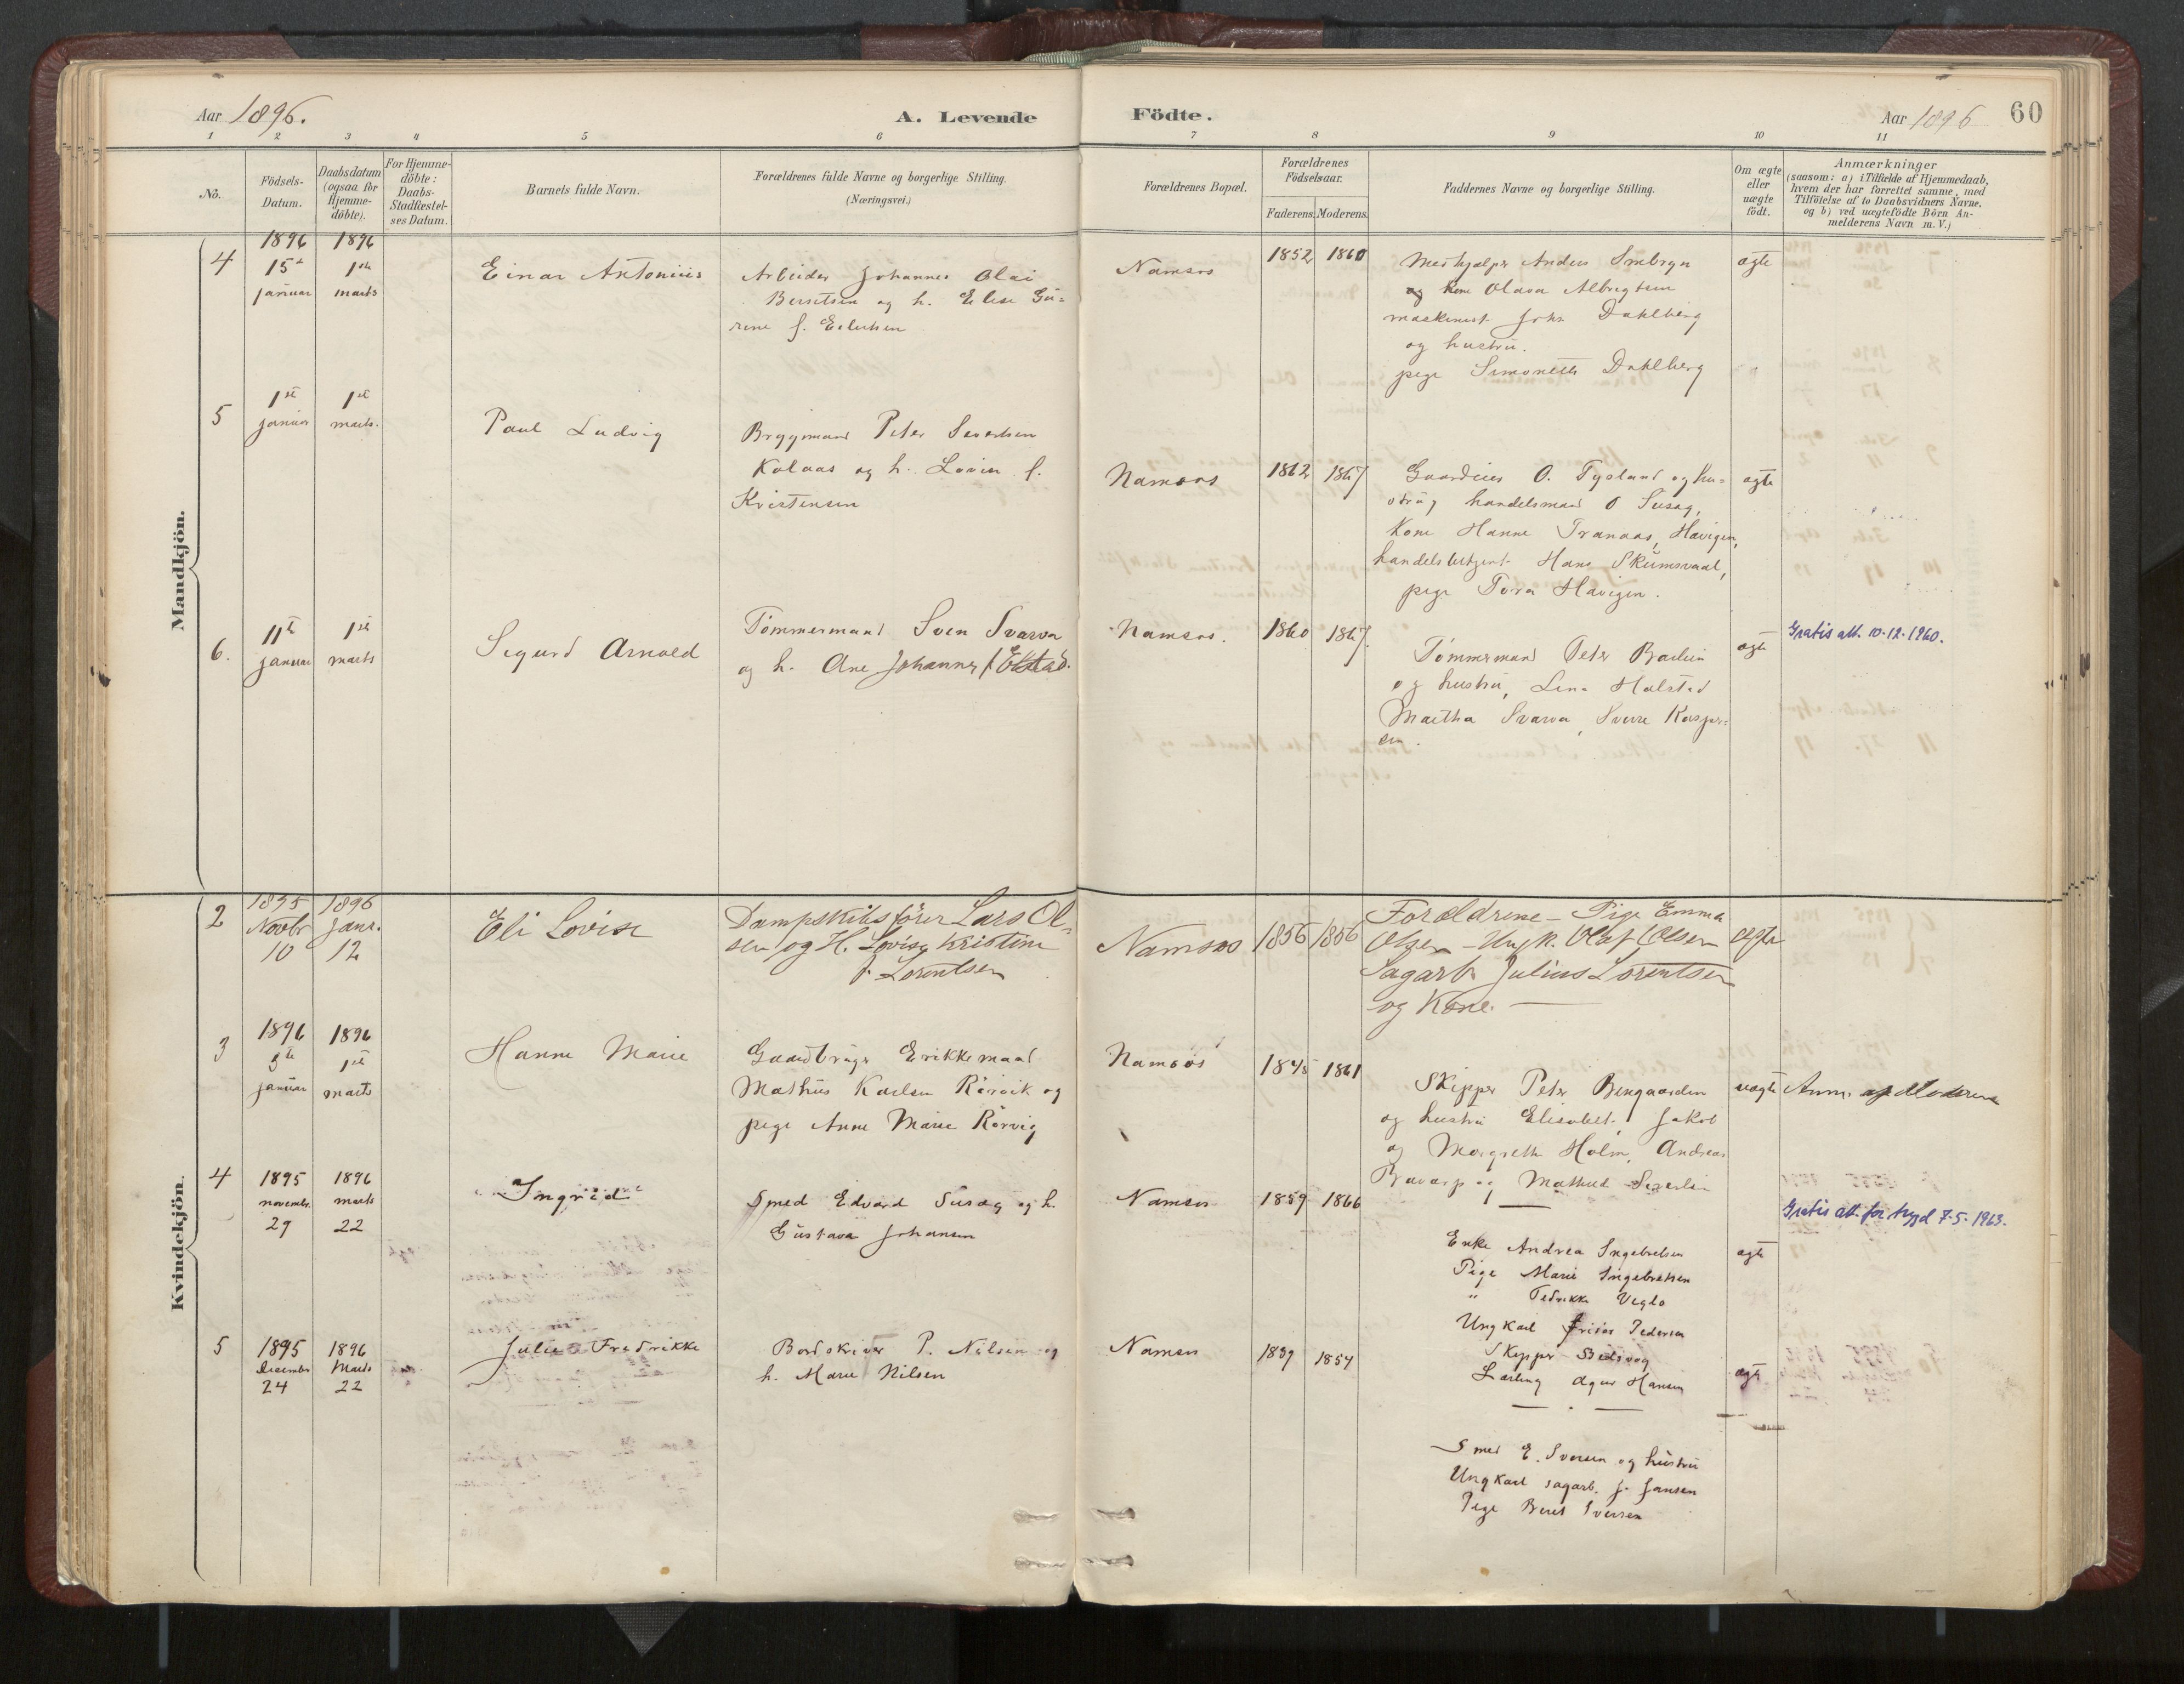 Aar 1896.
A. Levende Födte.
Aar 1896
60
1 2 3 4 5 6 7 8 9 10 11
No.
Födsels-Datum.
Daabsdatum (ogsaa for Hjemme-döbte).
For Hjemme-döbte: Daabs-Stadfæstel-ses Datum.
Barnets fulde Navn.
Forældrenes fulde Navne og borgerlige Stilling.
(Næringsvei.)
Forældrenes Bopæl.
Forældrenes Födselsaar.
Faderens. Moderens.
Faddernes Navne og borgerlige Stilling.
Om ægte eller uægte födt.
Anmærkninger
(saasom: a) i Tilfælde af Hjemmedaab, hvem der har forrettet samme, med Tilföielse af to Daabsvidners Navne, og b) ved uægtefödte Börn An-melderens Navn m. V.)
Mandkjön.
4
1896 15de januar
1896 1ste marts
Einar Antonius
Arbeider Johannes Olai
Berntsen og h. Elise Gu-
rine f. Eilertsen
Namsos
1852 1860
Anders
og kone Olava Albregtsen
maskinist Johs Dahlberg
og hustru.
pige Simonette Dahlberg
ægte
5
1ste januar
1ste marts.
Paul Ludvig
Bryggmand Peter Severtsen
Kolaas og h. Lovise f.
Kristensen
Namsos
1862 1867
O. Tysland og hu-
stru handelsmand O Susag,
Kone Hanne Tranaas, Havigen,
handelsbetjent Hans Skumsvaal,
pige Tora Havigen.
ægte
6.
11te januar
1ste marts
Sigurd Arnold
Tömmermand Sven Svarva
og h. Ane Johanne f. Ekstad.
Namsos.
1860 1867.
Tömmermand Peter
og hustru, Lina Halstad
Martha Svarva, Sverre Kasper-
sen.
ægte
Gratis att. 10.12.1960.
Kvindekjön.
2
1895 Novbr 10
1896 Janr. 12
Eli Lovise
Dampskibsförer Lars Ol-
sen og H. Lovise Kristine
f. Lorentsen
Namsos
1856 1856
Forældrene - Pige Emma
Olsen - Ungk. Olaf Olsen
Sagarb. Julius Lorentsen
og Kone.
ægte
3
1896 5te januar
1896 1ste marts
Hanne Marie
Gaardbruger Enkkemand
Mathius Karlsen Rörvik og
pige Anne Marie Rörvig
Namsos
1848 1861
Skipper Peter Bengaarden
og hustru Elisabet. Jakob
og Margrethe Holm, Andreas
og Mathud
uægte
Anm. af Moderen
4
1895 novembr. 29
1896 marts 22
Ingrid
Smed Edvard Susag og h.
Gustava Johansen
Namsos
1859 1866
Enke Andrea Ingebretsen
Pige Marie Ingebretsen
" Fedrikke Veglo
Ungkarl Pedersen
Skipper
Lærling Hansen
ægte
Gratis att. for trygd 7.5.1963.
5
1895 December 24
1896 Marts 22
Julie Fredrikke
Bordskriver P. Nilsen og
h. Marie Nilsen
Namsos
1859 1854
ægte
Smed E. Iversen og hustru
Ungkarl sagarb. J. Jansen
Pige Beret Iversen